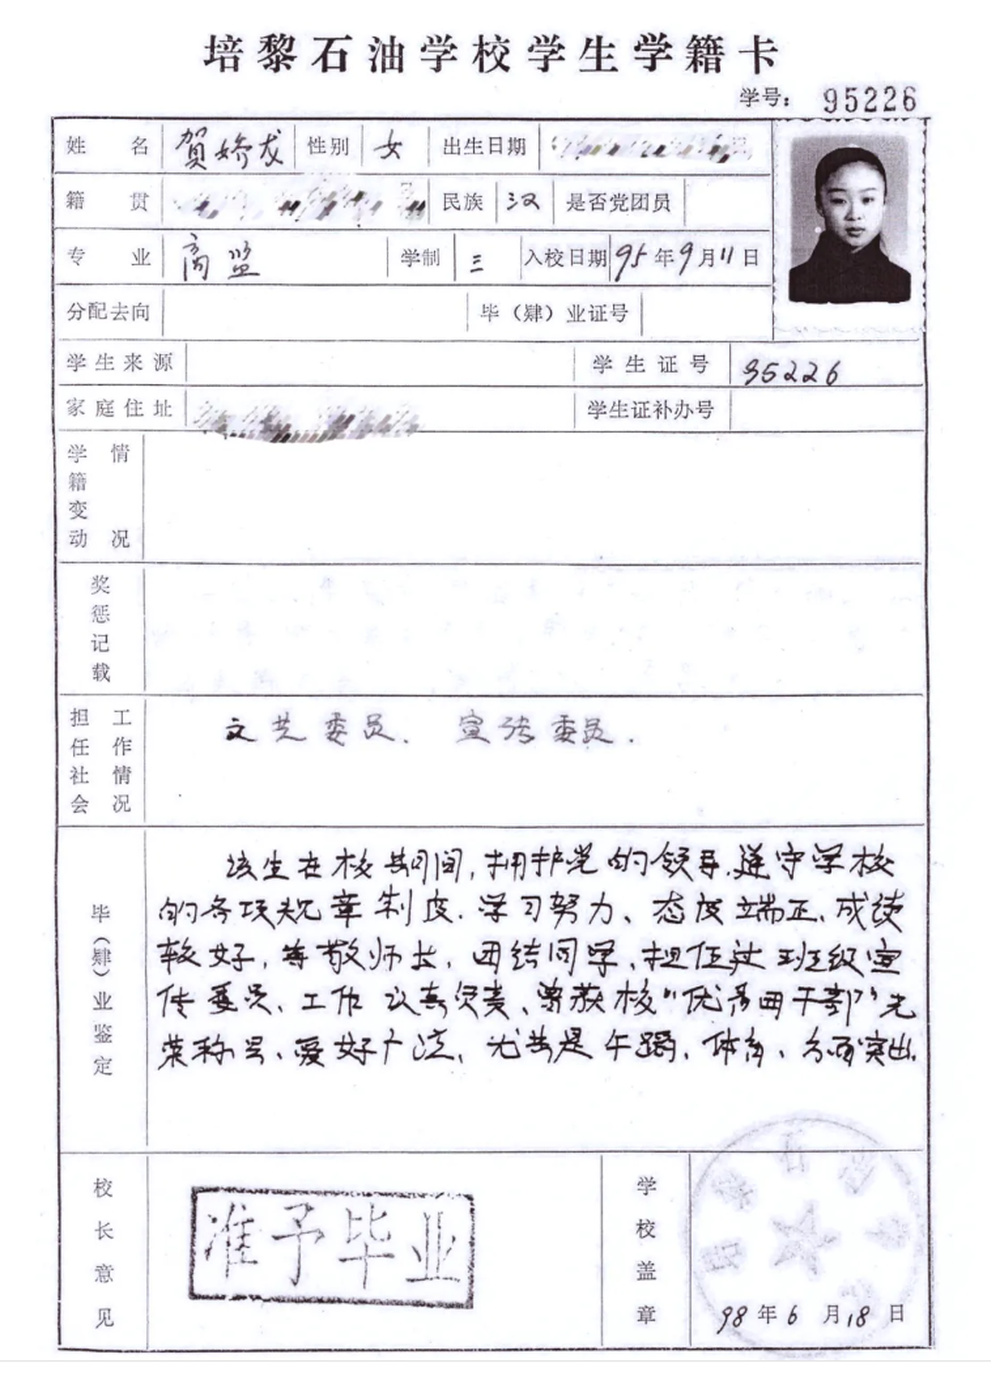 培黎石油学校学生学籍卡
学号： 95226
姓名 贺娇龙 性别 女 出生日期
籍贯 民族 汉 是否党团员
专业 商监 学制 三 入校日期 95年9月11日
分配去向 毕（肄）业证号
学生来源 学生证号 95226
家庭住址 学生证补办号
学籍变动情况
奖惩记载
担任社会工作情况 文艺委员、宣传委员.
毕（肄）业鉴定
该生在校期间,拥护党的领导,遵守学校
的各项规章制度.学习努力、态度端正、成绩
较好,尊敬师长,团结同学,担任过班级宣
传委员、工作认真负责、曾获校“优秀团干部”光
荣称号、爱好广泛、尤其是午蹈、体育、方面突出.
校长意见 准予毕业
学校盖章 98年6月18日